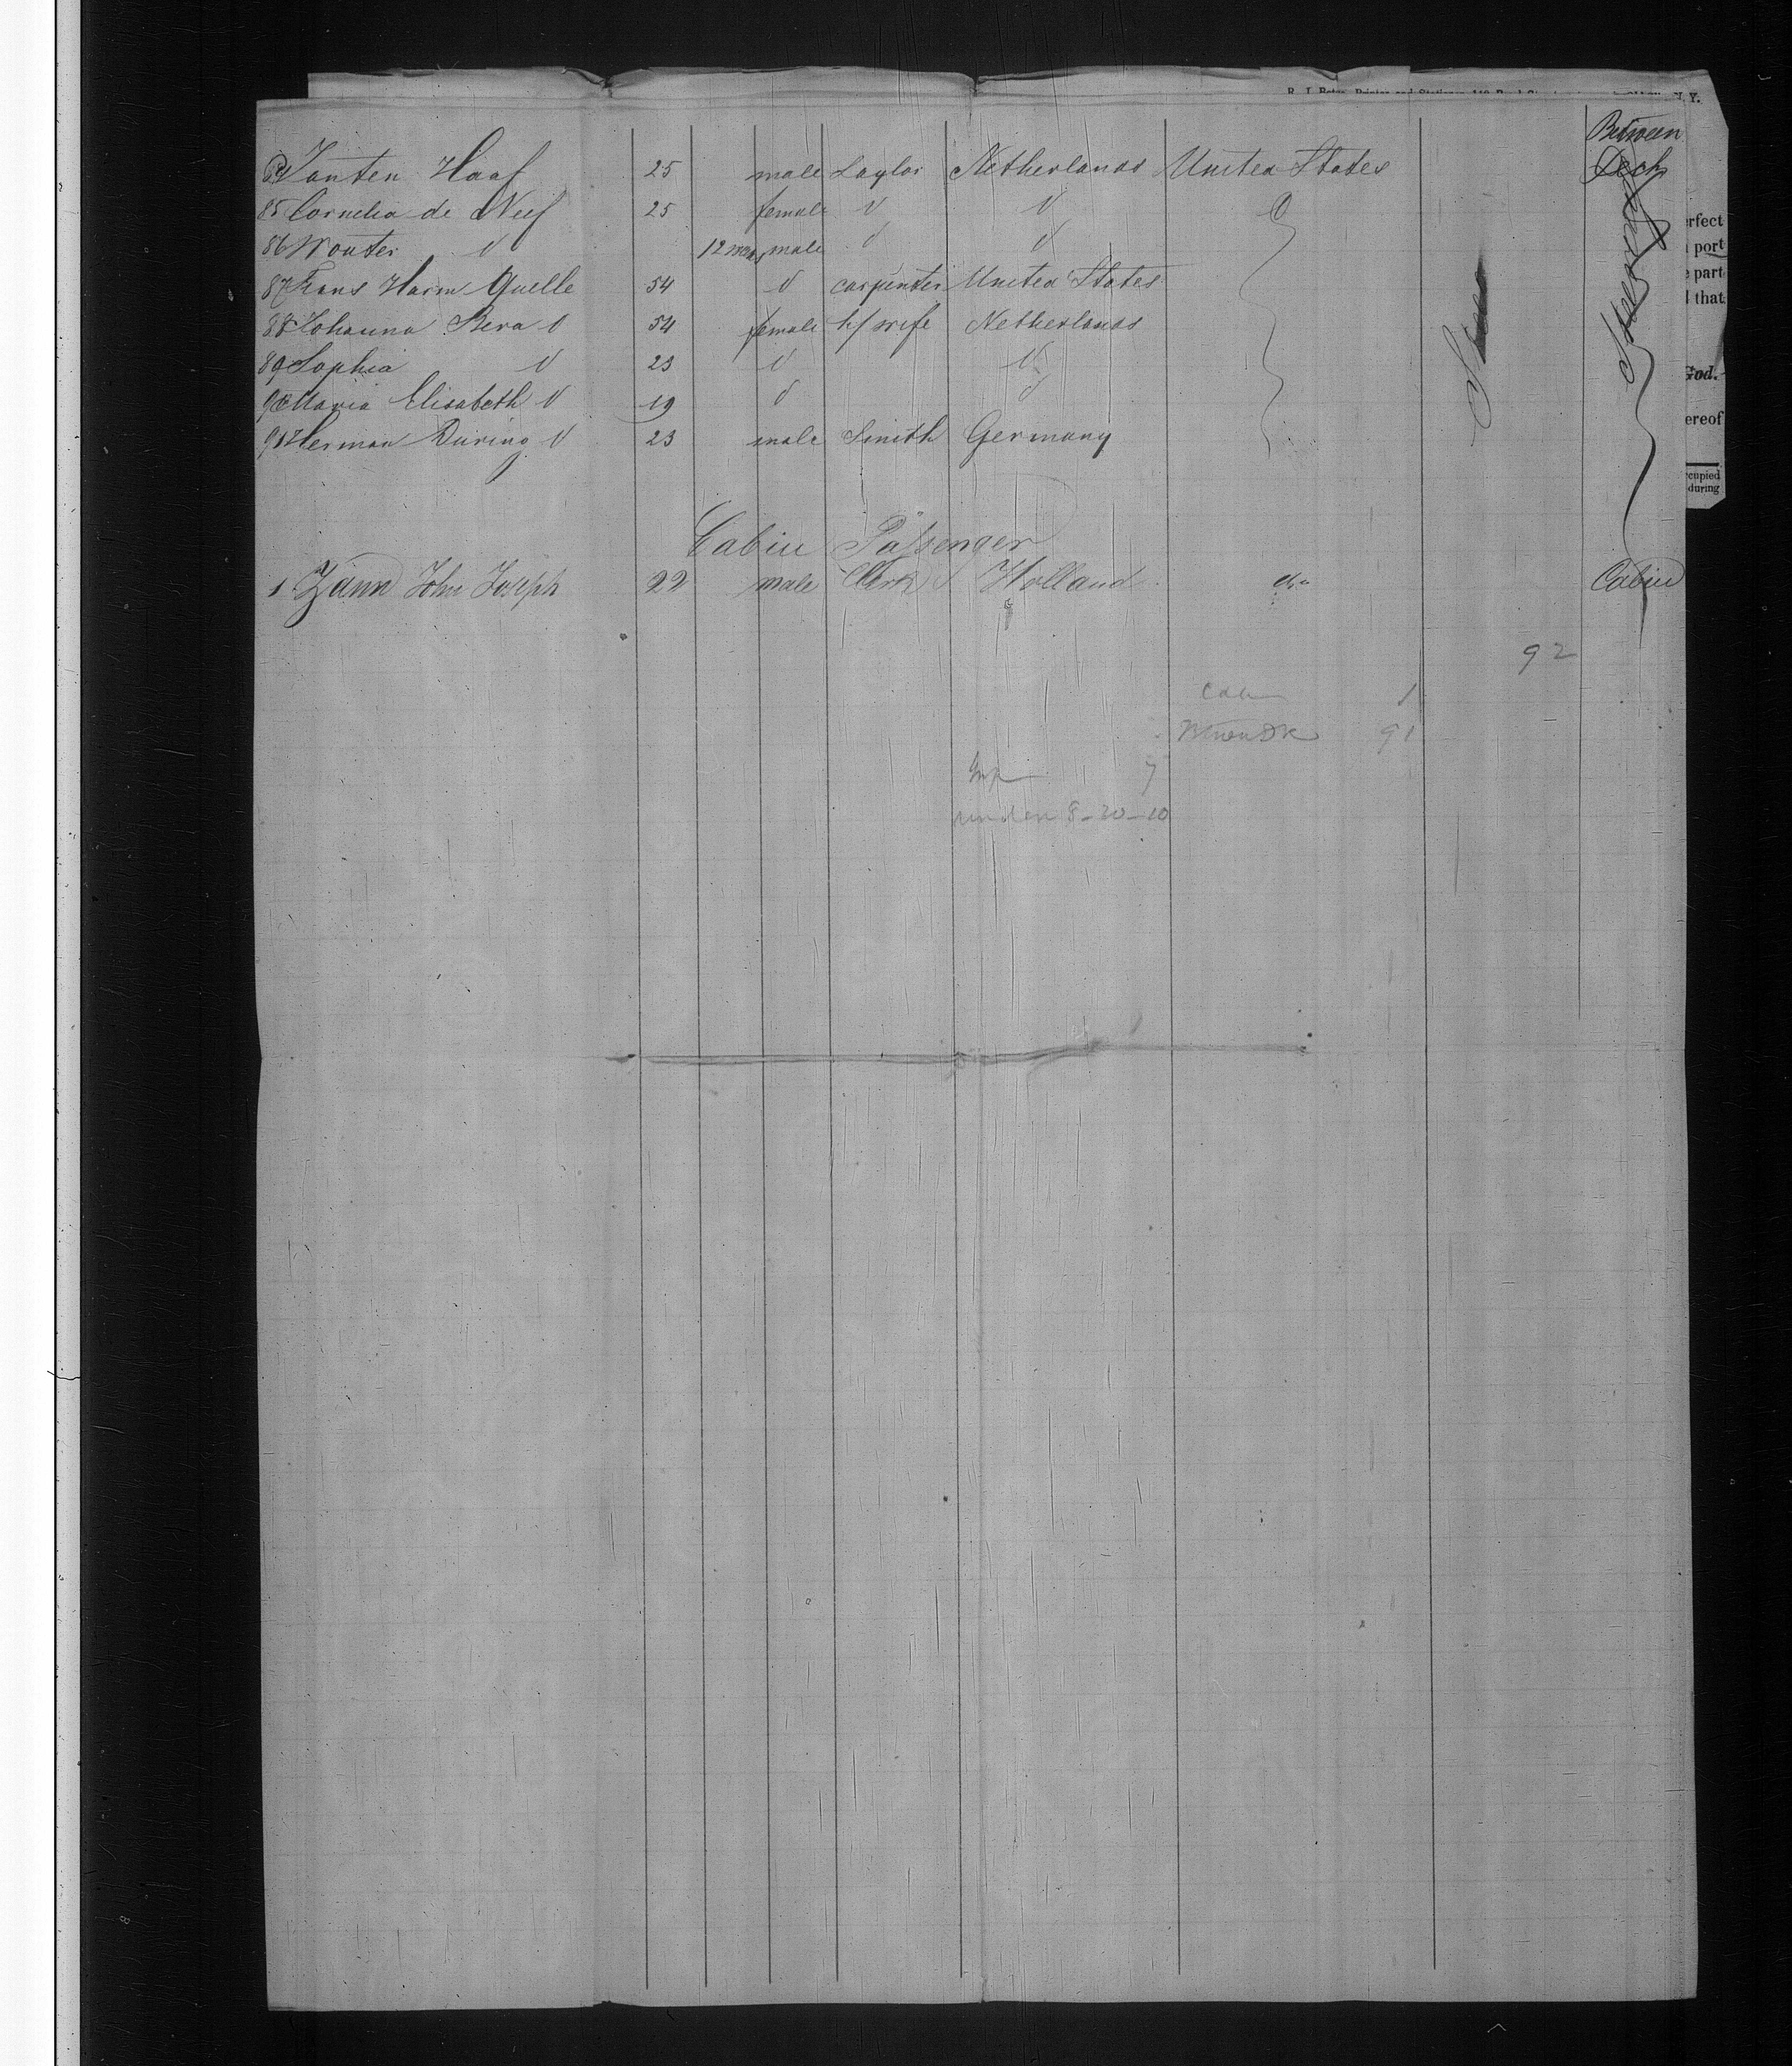 Between
84 Vanten Haaf 25 male Taylor Netherlands United States Deck
85 Cornelia de Neef 25 female
86 Wouter 12 male
87 Frans Harm Quelle 54 carpenter United States
88 Johanna Bera 54 female h/wife Netherlands
89 Sophia 23
90 Maria Elisabeth 19
91 Herman During 23 male Smith Germany
Cabin Passenger
1 Zann John Joseph 22 male Clerk Holland do Cabin
92
Cab 1
91
7
under 8 - 20 - 10
erfect
port
part
that
God.
ereof
cupied
during